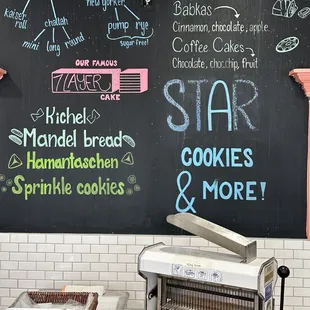 new yorker
kaiser
roll
challah
mini
long
round
pump
rye
sugar free!
Babkas
Cinnamon, chocolate, apple
Coffee Cakes
Chocolate, chocchip, fruit
OUR FAMOUS
7 LAYER
CAKE
Kichel
Mandel bread
Hamantaschen
Sprinkle cookies
STAR
COOKIES
& MORE!